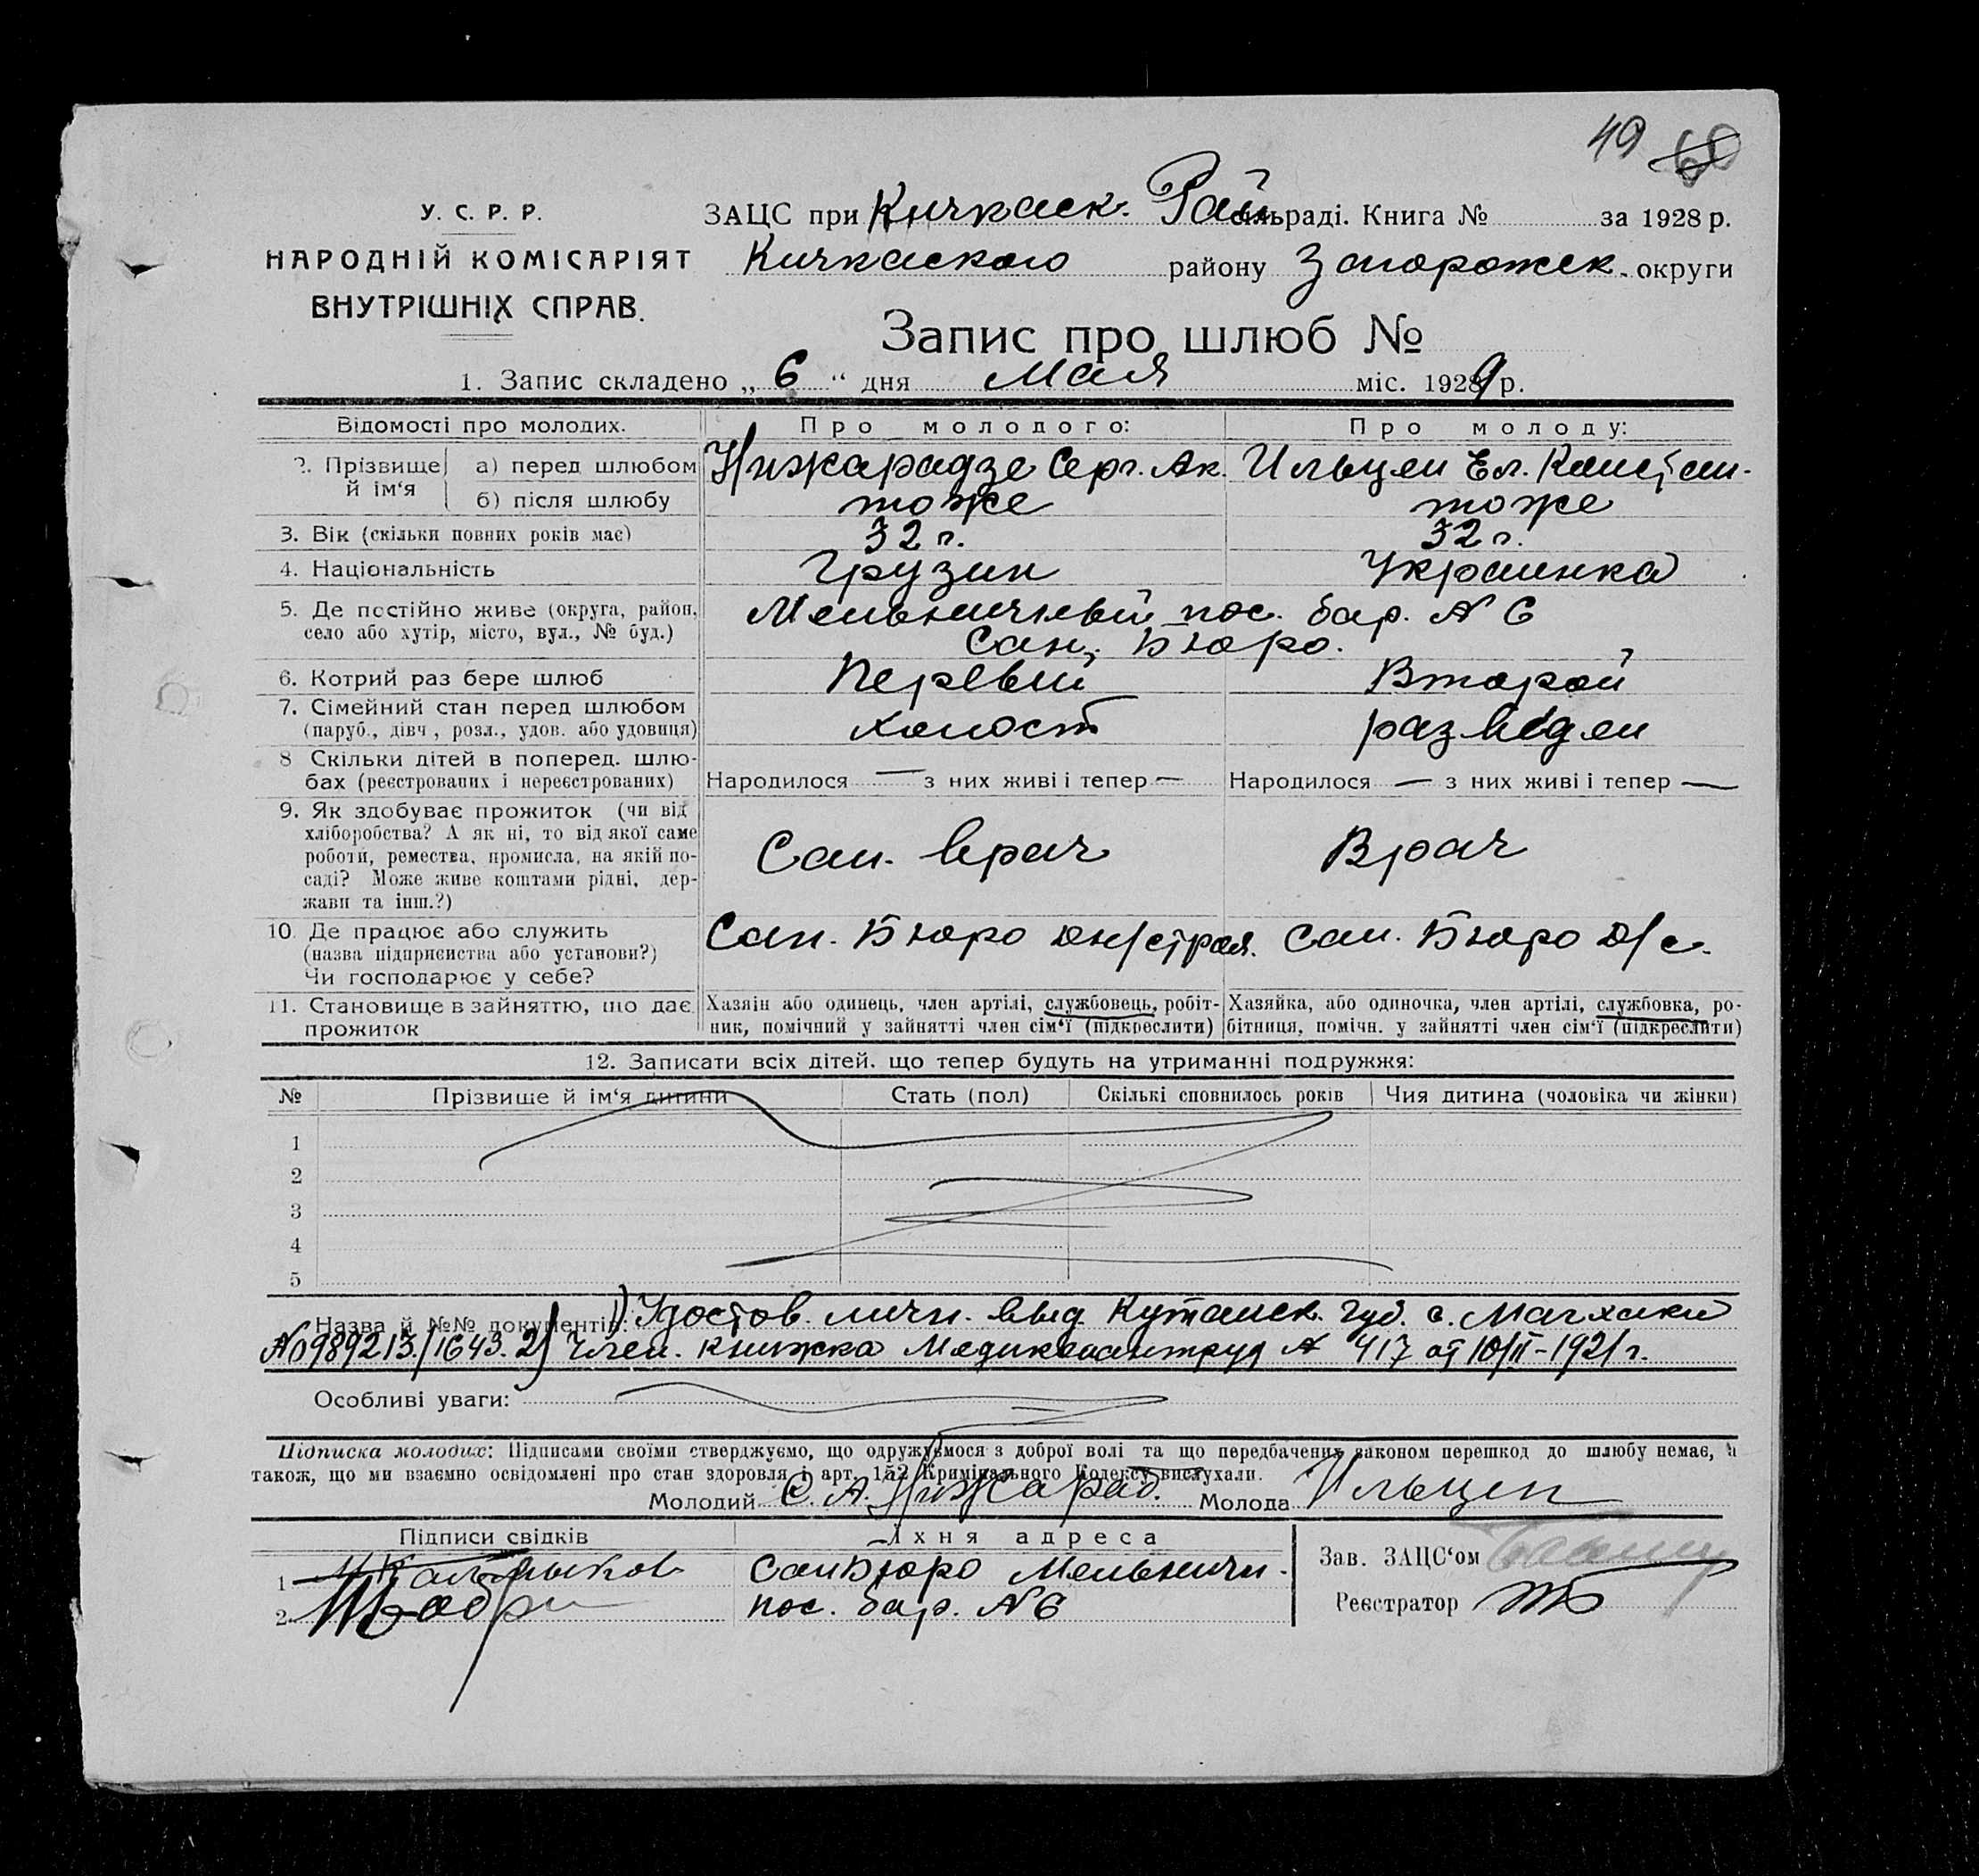 49 60
У. С. Р. Р.
НАРОДНІЙ КОМІСАРІЯТ
ВНУТРІШНІХ СПРАВ.
ЗАЦС при Кичкаск. Рай сільраді. Книга № за 1928 р.
Кичкаского району Запорожск. округи
Запис про шлюб №
1. Запис складено „ 6 “ дня Мая міс. 1929 р.
Відомості про молодих. Про молодого: Про молоду:
2. Прізвище й ім‘я а) перед шлюбом Нижарадзе Серг. Ак. Ильцен Ел. Констан.
б) після шлюбу тоже тоже
3. Вік (скільки повних років має) 32 г. 32 г.
4. Національність Грузин Украинка
5. Де постійно живе (округа, район, Мельничный пос. бар. № 6
село або хутір, місто, вул., № буд.) Сан. Бюро.
6. Котрий раз бере шлюб Первый Второй
7. Сімейний стан перед шлюбом
(паруб., дівч., розл., удов. або удовиця) холост разведен
8 Скільки дітей в поперед. шлю-
бах (реєстрованих і нереєстрованих) Народилося — з них живі і тепер — Народилося — з них живі і тепер —
9. Як здобуває прожиток (чи від
хліборобства? А як ні, то від якої саме
роботи, ремества, промисла, на якій по-
саді? Може живе коштами рідні, дер-
жави та інш.?) Сан. врач Врач
10. Де працює або служить Сан. Бюро Дн/строя. Сан. Бюро Д/с.
(назва підприємства або установи?)
Чи господарює у себе?
11. Становище в зайняттю, що дає Хазяїн або одинець, член артілі, службовець, робіт- Хазяйка, або одиночка, член артілі, службовка, ро-
прожиток ник, помічний у зайнятті член сім‘ї (підкреслити) бітниця, помічн. у зайнятті член сім‘ї (підкреслити)
12. Записати всіх дітей. що тепер будуть на утриманні подружжя:
№ Прізвище й ім‘я дитини Стать (пол) Скількі сповнилось років Чия дитина (чоловіка чи жінки)
1
2
3
4
5
Назва й №№ документів: 1) Удостов. личн. выд. Кутаиск. губ. с.
№ 989213/1643. 2) Член. книжка Медикосантруд № 417 от 10/II-1921 г.
Особливі уваги:
Підписка молодих: Підписами своїми стверджуємо, що одружуємося з доброї волі та що передбачених законом перешкод до шлюбу немає, а
також, що ми взаємно освідомлені про стан здоровля і арт. 152 Кримінального Кодексу вислухали.
Молодий С. А. Нижарад. Молода Ильцен
Підписи свідків Їхня адреса
1 СанБюро Мельничн. Зав. ЗАЦС‘ом
2. пос. бар. № 6 Реєстратор